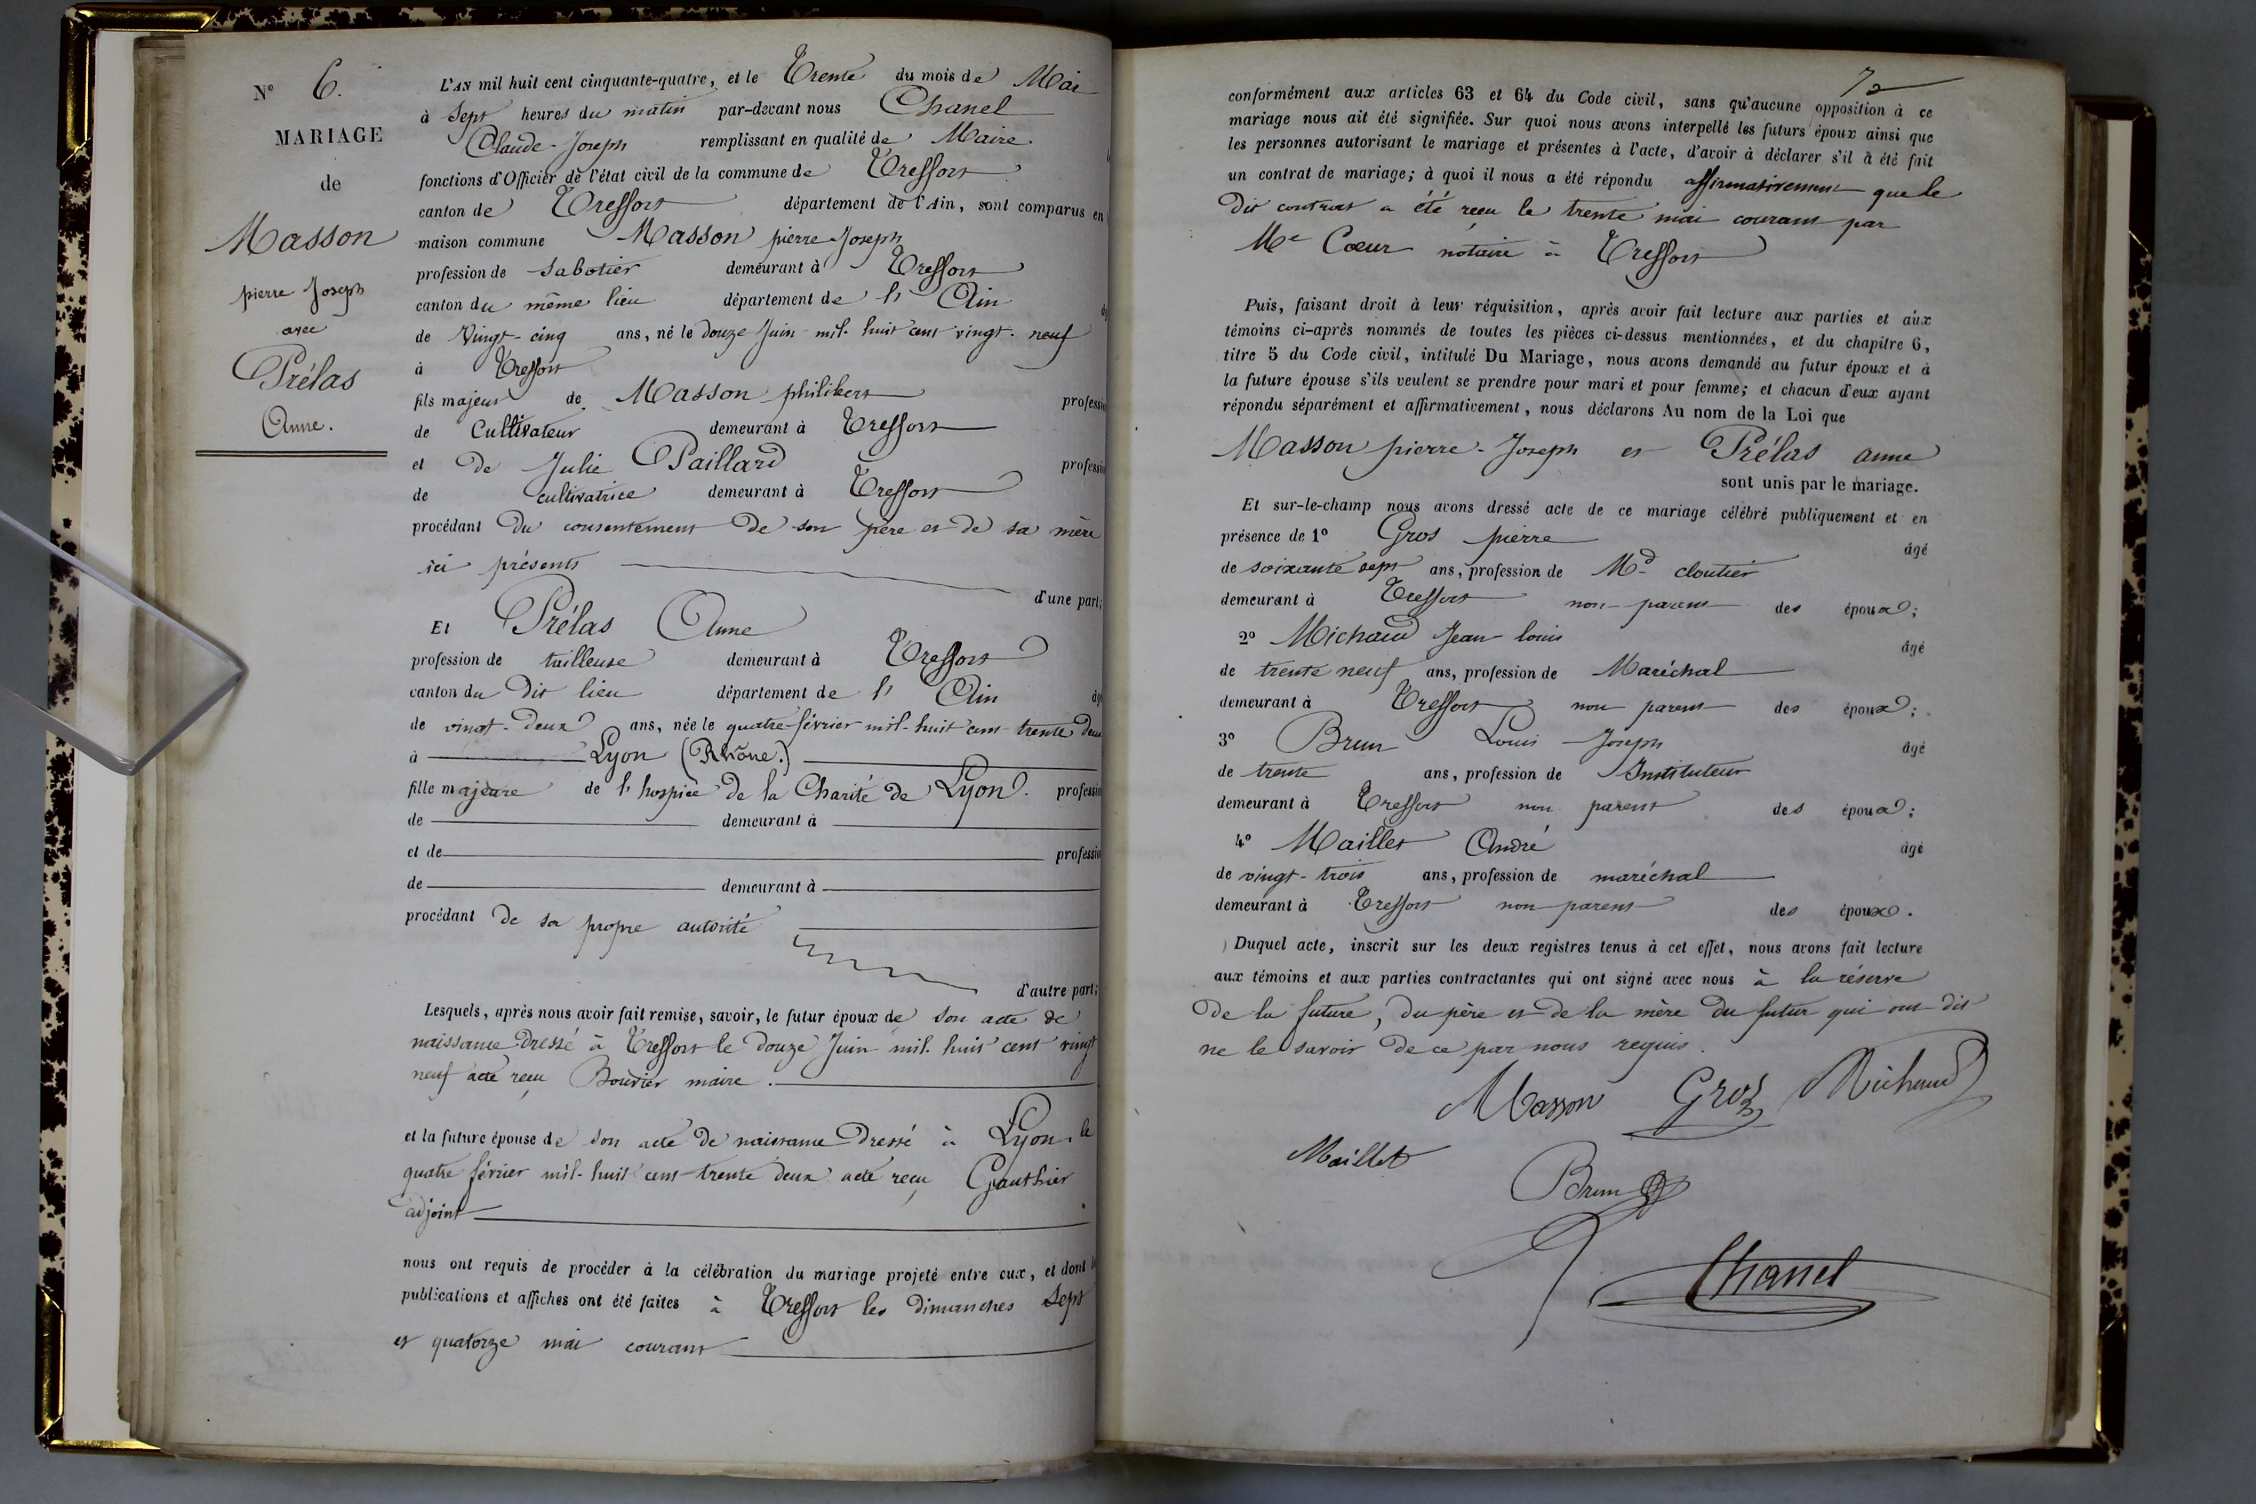 N° 6.
MARIAGE
de
Masson
pierre Joseph
avec
Prélas
Anne.
L'AN mil huit cent cinquante-quatre, et le Trente du mois de Mai
à Sept heures du matin par-devant nous Chanel
Claude-Joseph remplissant en qualité de Maire
fonctions d'Officier de l'état civil de la commune de Treffort
canton de Treffort département de l'Ain, sont comparus en
maison commune Masson pierre Joseph
profession de Sabotier demeurant à Treffort
canton du même lieu département de l' Ain
de Vingt-cinq ans, né le douze Juin mil-huit cent vingt-neuf
à Treffort
fils majeur de Masson philibert professio
de Cultivateur demeurant à Treffort
et de Julie Paillard professio
de cultivatrice demeurant à Treffort
procédant du consentement de son père et de sa mère
ici présents
d'une part;
Et Prélas Anne
profession de tailleuse demeurant à Treffort
canton du dit lieu département de l' Ain âg
de vingt-deux ans, née le quatre février mil-huit cent trente deux
à Lyon (Rhône.)
fille majeure de l'hospice de la Charité de Lyon. professio
de demeurant à
et de professio
de demeurant à
procédant de sa propre autorité
d'autre part;
Lesquels, après nous avoir fait remise, savoir, le futur époux de son acte de
naissance dressé à Treffort le douze Juin mil-huit cent vingt
neuf acte reçu Bouvier maire.
et la future épouse de son acte de naissance dressé à Lyon, le
quatre février mil-huit cent trente deux acte reçu Gauthier
adjoint
nous ont requis de procéder à la célébration du mariage projeté entre eux, et dont l
publications et affiches ont été faites à Treffort les dimanches Sept
et quatorze mai courant
72
conformément aux articles 63 et 64 du Code civil, sans qu'aucune opposition à ce
mariage nous ait été signifiée. Sur quoi nous avons interpellé les futurs époux ainsi que
les personnes autorisant le mariage et présentes à l'acte, d'avoir à déclarer s'il a été fait
un contrat de mariage; à quoi il nous a été répondu affirmativement que le
dit contrat a été reçu le trente mai courant par
Me Cœur notaire à Treffort
Puis, faisant droit à leur réquisition, après avoir fait lecture aux parties et aux
témoins ci-après nommés de toutes les pièces ci-dessus mentionnées, et du chapitre 6,
titre 5 du Code civil, intitulé Du Mariage, nous avons demandé au futur époux et à
la future épouse s'ils veulent se prendre pour mari et pour femme; et chacun d'eux ayant
répondu séparément et affirmativement, nous déclarons Au nom de la Loi que
Masson pierre-Joseph et Prélas anne
sont unis par le mariage.
Et sur-le-champ nous avons dressé acte de ce mariage célébré publiquement et en
présence de 1° Gros pierre âgé
de soixante sept ans, profession de Md cloutier
demeurant à Treffort non parent des époux;
2° Michaud Jean louis âgé
de trente neuf ans, profession de Maréchal
demeurant à Treffort non parent des époux;
3° Brun Louis Joseph âgé
de trente ans, profession de Instituteur
demeurant à Treffort non parent des époux;
4° Maillet André âgé
de vingt-trois ans, profession de maréchal
demeurant à Treffort non parent des époux.
Duquel acte, inscrit sur les deux registres tenus à cet effet, nous avons fait lecture
aux témoins et aux parties contractantes qui ont signé avec nous à la réserve
de la future, du père et de la mère du futur qui ont dit
ne le savoir de ce par nous requis.
Masson Gros Michaud
Maillet
Brun
Chanel